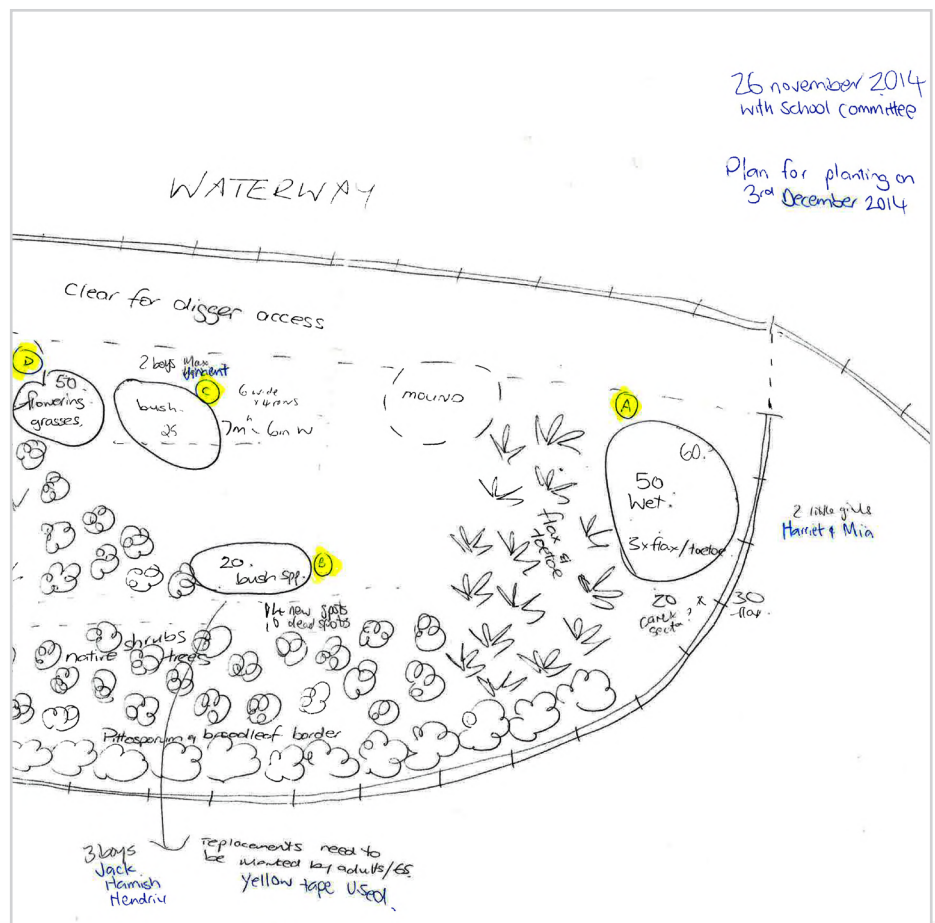 26 november 2014
with school committee
Plan for planting on
3rd December 2014
WATERWAY
Clear for digger access
D
50.
flowering
grasses.
2 boys Max
Vincent
C
bush.
25
6 wide
x 4 rows
7m 6m W
MOUND
A
60.
50
Wet.
3x flax/toetoe
2 little girls
Harriet & Mia
flax &
toetoe
20.
bush spp.
B
14 new spots
6 dead spots
20
carex
secta?
x 30
flax.
shrubs
native trees
Pittosporum & broadleaf border
3 boys
Jack
Hamish
Hendrix
replacements need to
be marked by adults/
Yellow tape used.